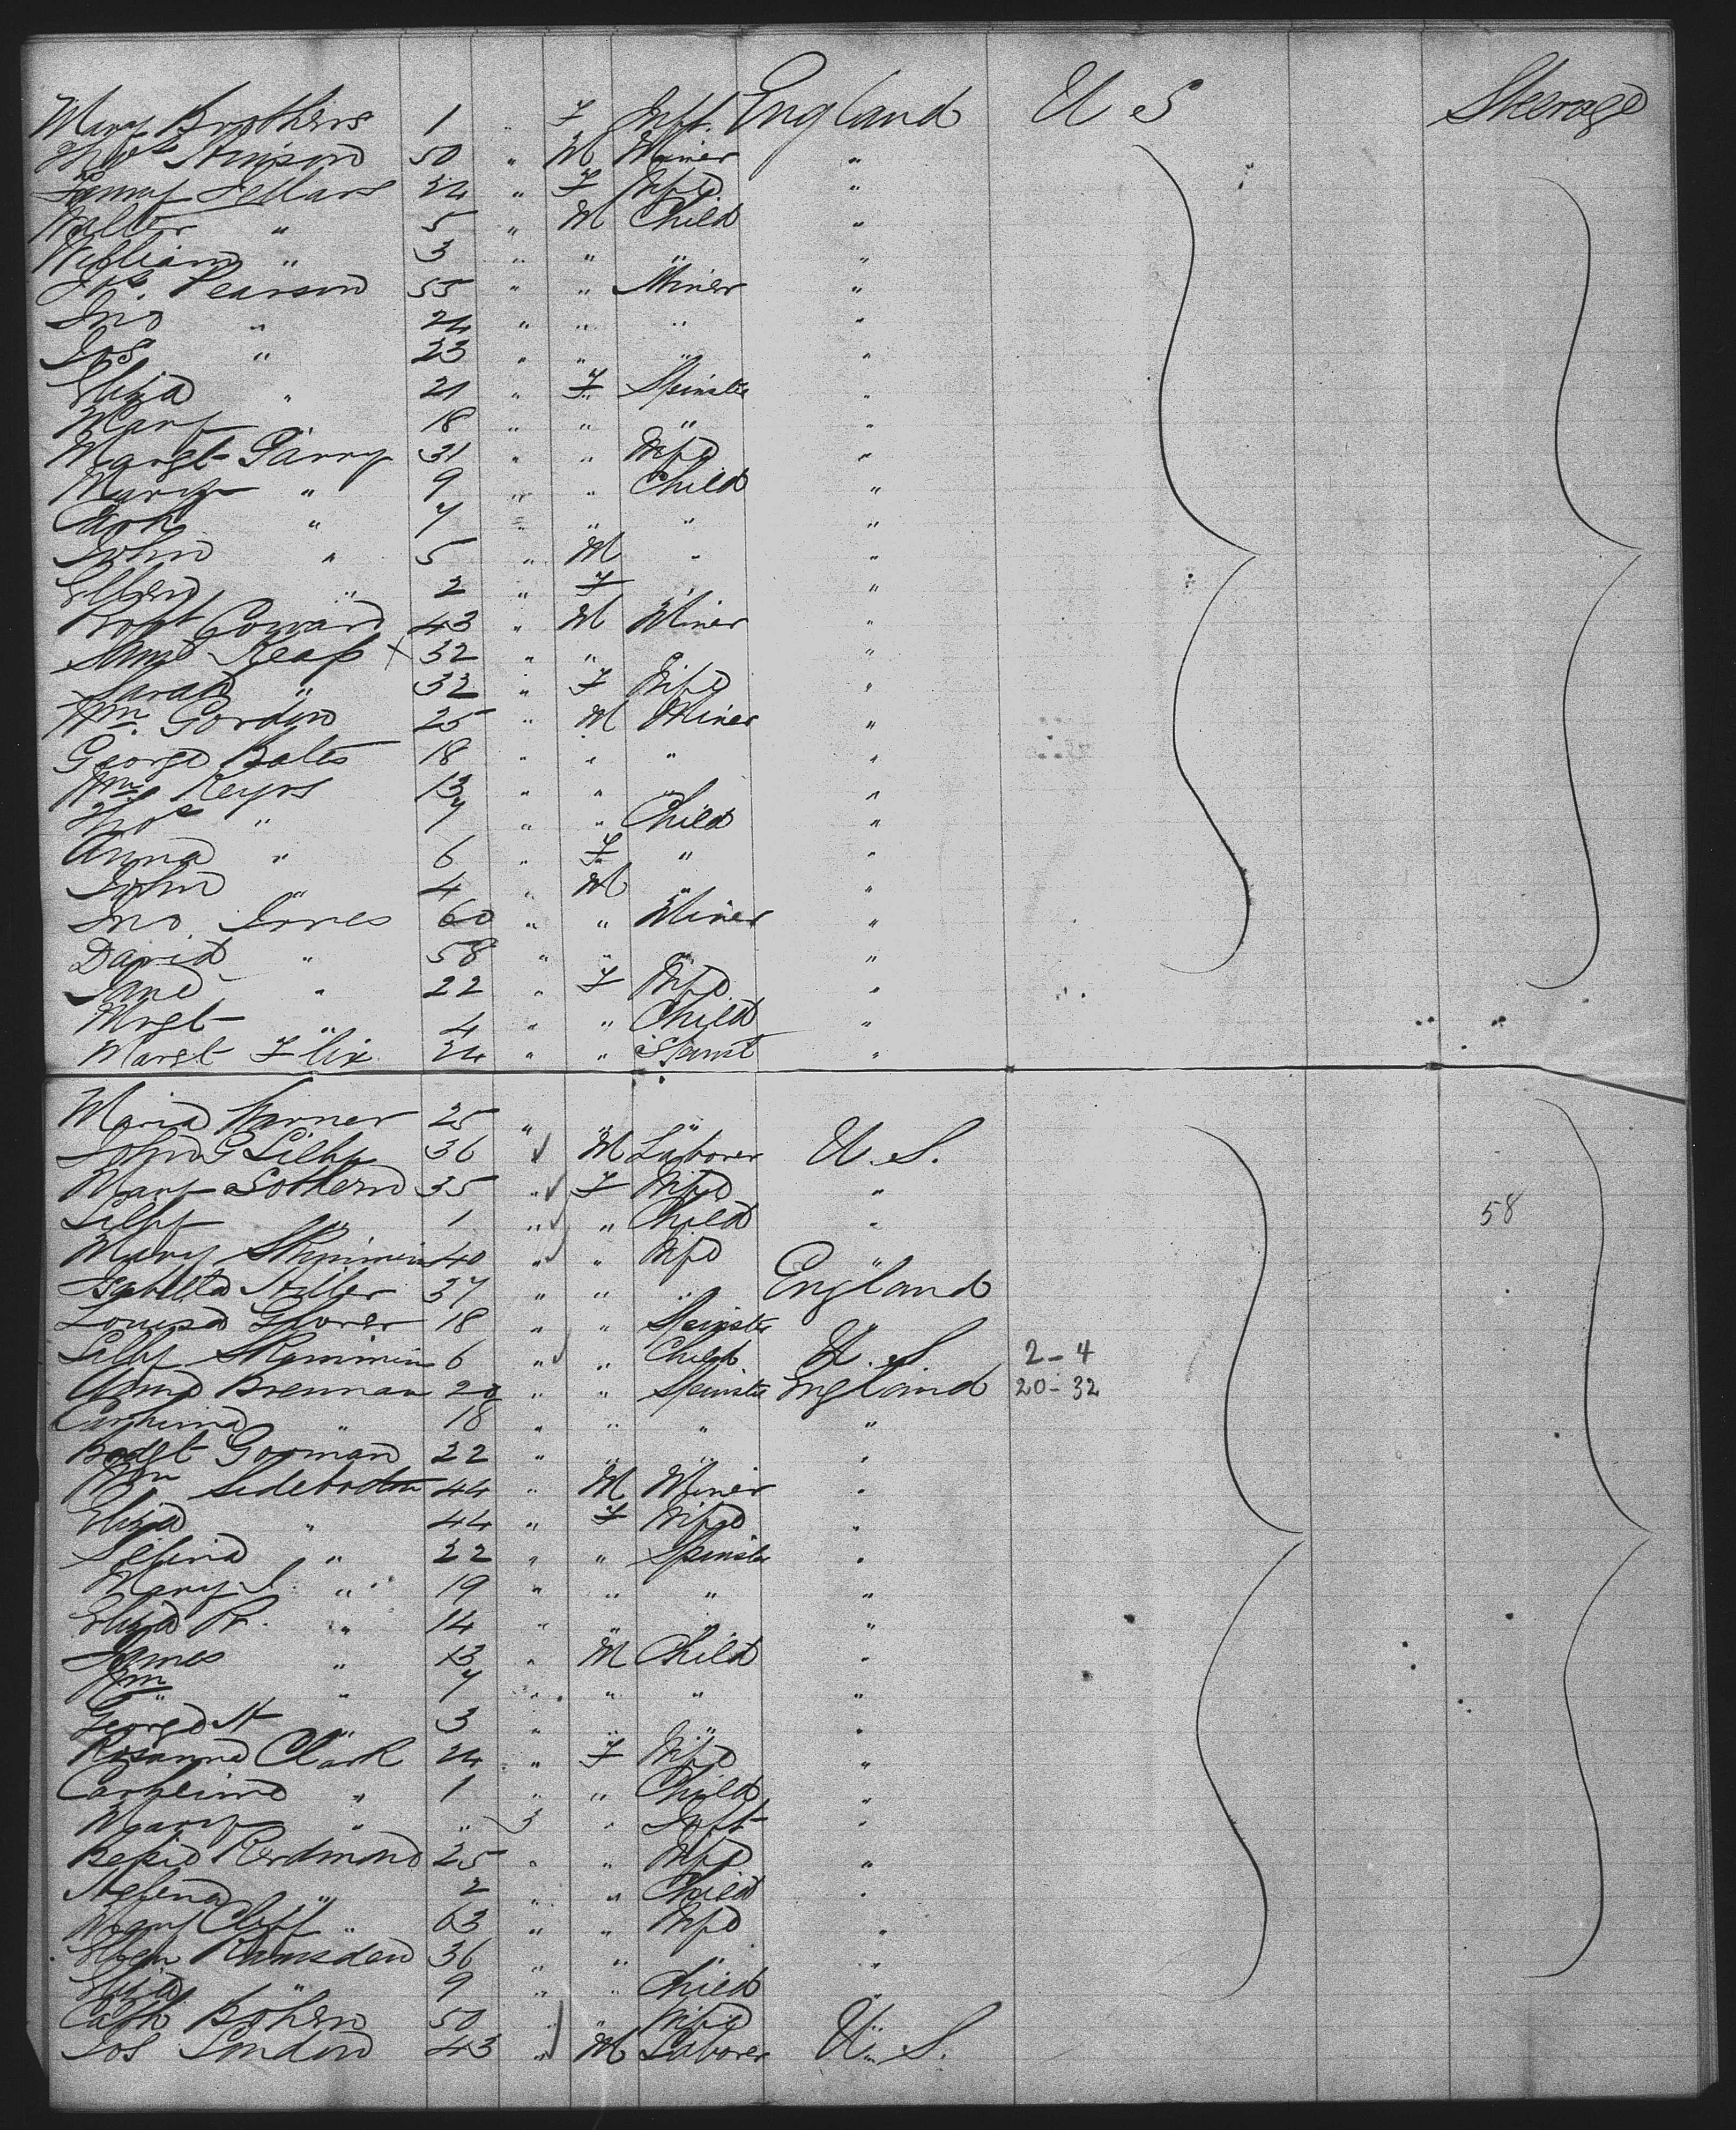 Mary Brothers 1 " F Inft. England U S Steerage
Thos Stinson 50 " M Miner "
Fanny Fellars 24 " F Wife "
Walter " 5 " M Child "
William " 3 " " " "
Pearson 55 " " Miner "
Jno " 24 " " " "
Jos " 23 " " " "
Eliza " 21 " F Spinster "
Mary 18 " " " "
Margt Parry 31 " " Wife "
Mary " 9 " " Child "
Cath " 7 " " " "
John " 5 " M " "
Ellen " 2 " F " "
Robt Coward 43 " M Miner "
Saml Reap x 32 " " "
Sarah " 32 " F Wife "
Wm. Gordon 25 " M Miner "
George Bates 18 " " " "
Wm. Keyes 13 " " " "
Thos " 7 " " Child "
Anna " 6 " F " "
John " 4 " M " "
Jno. Jones 60 " " Miner "
David " 58 " " " "
Jane " 22 " F Wife "
Mrgt " 4 " " Child "
Margt 24 " " Spinst "
Maria Warner 25 " " "
John G Lilly 36 " M Laborer U. S.
Mary Sothern 35 " F Wife "
Lilly " 1 " " Child " 58
Mary Skimmin 40 " " Wife "
Isabella 37 " " " England
Louisa Glover 18 " " Spinster
Lilly Skimmin 6 " " Child U. S 2-4
Anna Brennan 20 " " Spinster England 20-32
" 18 " " " "
Bridgt Gorman 22 " " " "
Wm Sidebottom 44 " M Miner "
Eliza " 44 " F Wife "
Selina " 22 " " Spinster "
Mary J. " 19 " " " "
Eliza R. " 14 " " " "
James " 13 " M Child "
Wm " 7 " " " "
George H " 3 " " " "
Rosanna Clark 24 " F Wife "
Catherine " 1 " " Child "
Mary " " 3 " Inft "
Bessie Redmond 25 " " Wife "
Helena " 2 " " Child "
Mary Cliff " 63 " " Wife "
Ellen Ramsden 36 " " " "
Eliza " 9 " " Child "
Cath Bohen 50 " " Wife U. S.
Jos London 43 " M Laborer "